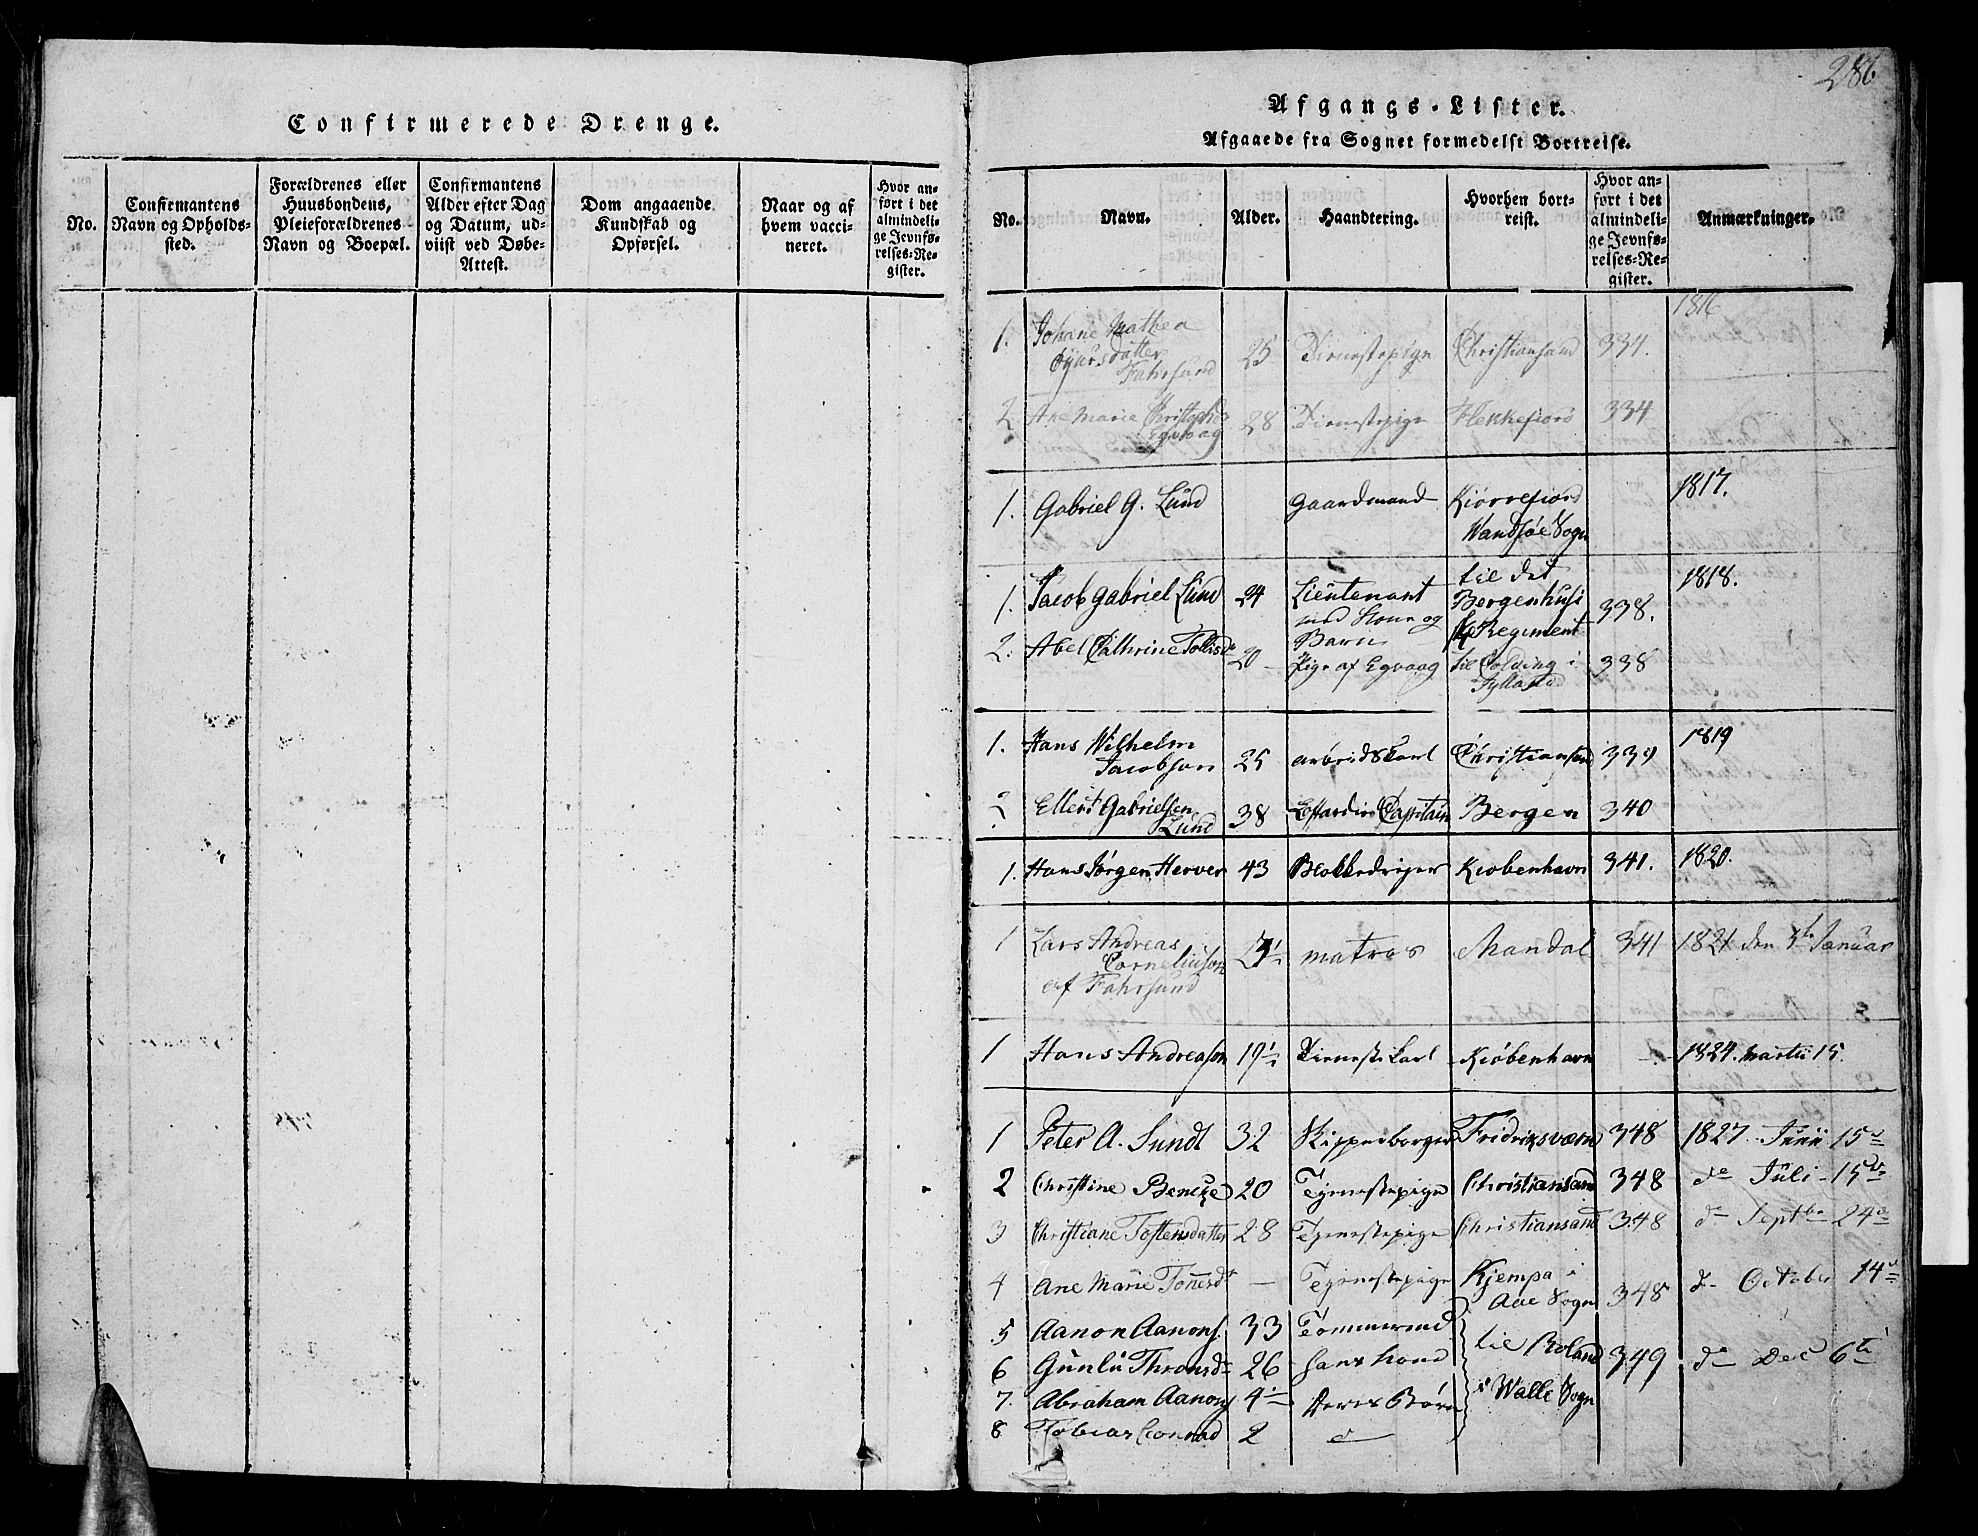 Confirmerede Drenge.
No.
Confirmantens
Navn og Opholds-
sted.
Forældrenes eller
Huusbondens,
Pleieforældrenes
Navn og Boepæl.
Confirmantens
Alder efter Dag
og Datum, ud-
viist ved Døbe-
Attest.
Dom angaaende
Kundskab og
Opførsel.
Naar og af
hvem vacci-
neret.
Hvor an-
ført i det
almindeli-
ge Jevnfø-
relses-Re-
gister.
286
Afgangs-Lister.
Afgaaede fra Sognet formedelst Bortreise.
No.
Navn.
Alder.
Haandtering.
Hvorhen bort-
reist.
Hvor an-
ført i det
almindeli-
ge Jevnfø-
relses-Re-
gister.
Anmærkninger.
1816
1. Johane Mathea
Fahrsund 25 Tienestepige Christiansand 334.
2 Ane Marie
Egvaag 28 Tienestepige Flekkefiord 334
1. Gabriel G. Lund Gaardmand Kiørrefiord 1817.
Vandsøe Sogn
1. Jacob Gabriel Lund 24 Lieutenant til det 1818.
med Kone og Bergenhusi 338.
Barn Regiment
2. Abel Cathrine 20 Pige af Egvaag til Colding i 338
1. Hans Wilhelm 1819
Jacobsen 25 arbeidskarl Christiansand 339
2. Ellert Gabrielsen
Lund 38 Capitain Bergen 340
1. Hans Jørgen Herver 43 Kiøbenhavn 341. 1820.
1 Lars Andreas
Corneliusen matros Mandal 341 1821 den Januar
af Fahrsund
1 Hans Andreasen 19½ Tienestekarl Kiøbenhavn - 1824. Martii 15.
1 Peter A. Sundt 32 Skipperborger Fridriksværn 348 1827 Junii 15
2 Christine 20 Tjenestepige Christiansand 348 do Juli 15
3 Christiane Tostensdatter 28 Tjenestepige Christiansand 348 do Septbr 24
4 Ane Marie — Tjenestepige Kjempa i
Aae Sogn 348 do October 14
5 Aanon Aanons. 33 Tømmermd
6 Gunlu 26 hans Kone til Roland 349 do Dec 6
7. Abraham Aanons 4 Deres Børn i Walle Sogn
8 Tobias Conrad 2 do